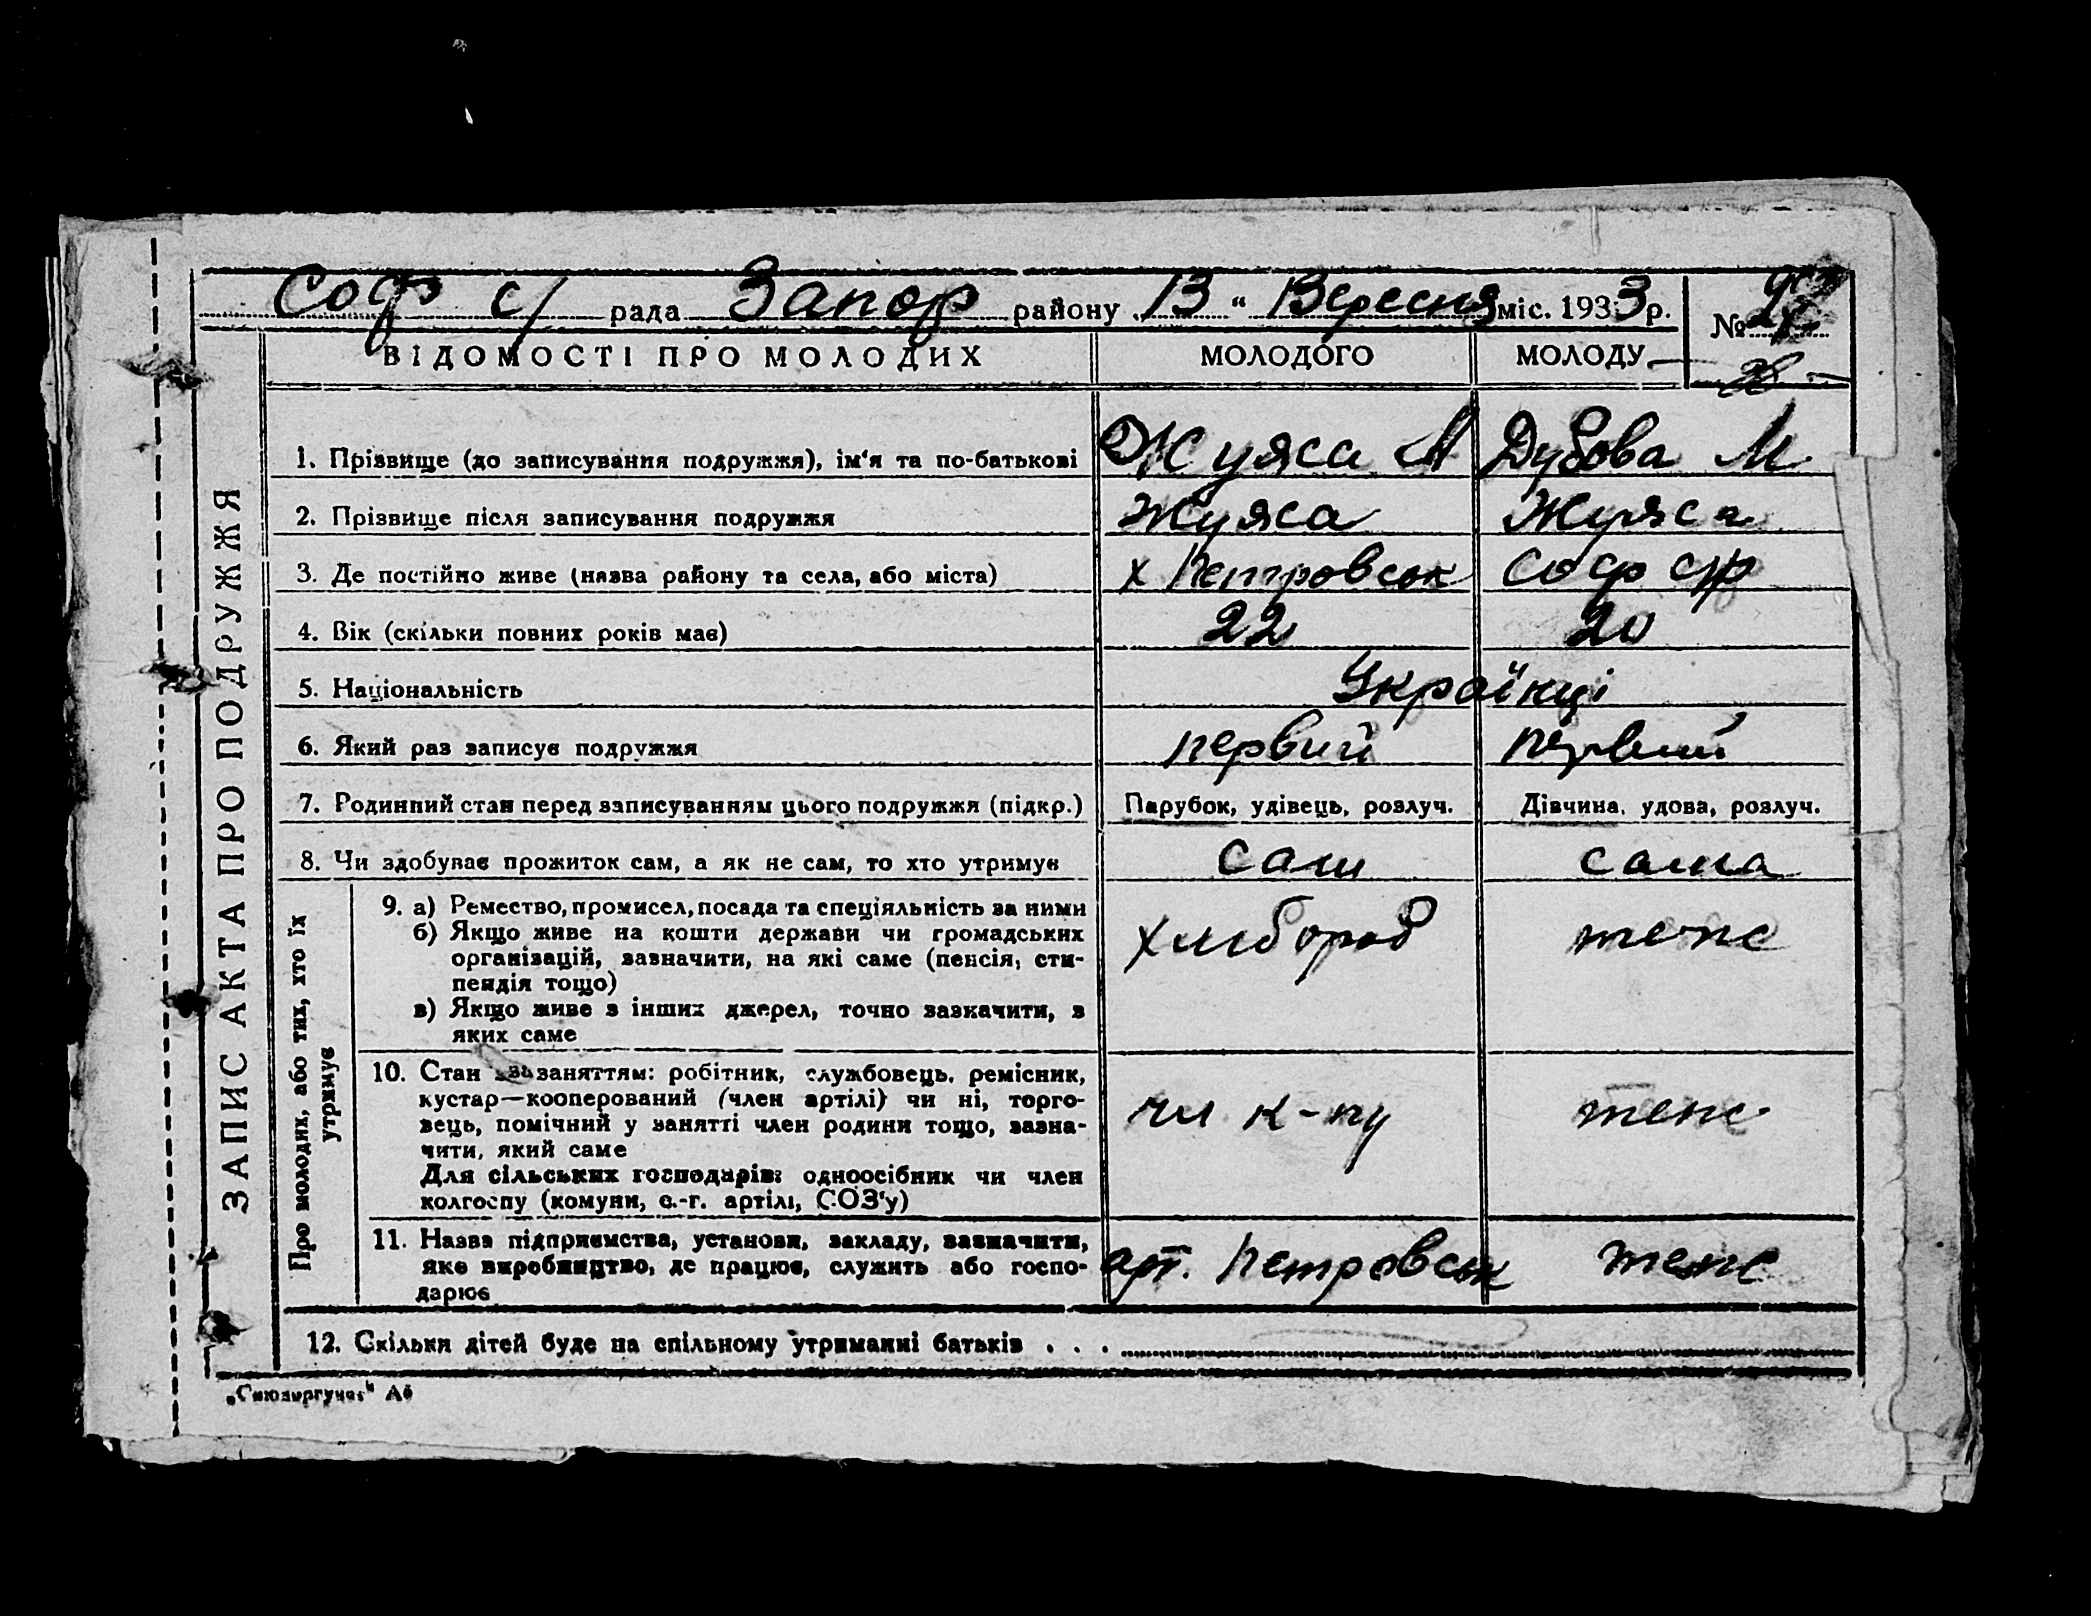 Соф с/ рада Запор району 13 " Вересня міс. 1933 р.
№
ВІДОМОСТІ ПРО МОЛОДИХ МОЛОДОГО МОЛОДУ
ЗАПИС АКТА ПРО ПОДРУЖЖЯ
1. Прізвище (до записування подружжя), ім'я та по-батькові Жуяса А Дубова М.
2. Прізвище після записування подружжя Жуяса Жуяса
3. Де постійно живе (назва району та села, або міста) х Петровськ Соф с/р
4. Вік (скільки повних років має) 22 20
5. Національність Українці
6. Який раз записує подружжя первий первий
7. Родинний стан перед записуванням цього подружжя (підкр.) Парубок, удівець, розлуч. Дівчина, удова, розлуч.
8. Чи здобуває прожиток сам, а як не сам, то хто утримує сам сама
Про молодих, або тих, хто їх
утримує
9. а) Ремество, промисел, посада та спеціяльність за ними
б) Якщо живе на кошти держави чи громадських хлібороб теж
організацій, зазначити, на які саме (пенсія, сти-
пендія тощо)
в) Якщо живе з інших джерел, точно зазначити, з
яких саме
10. Стан за заняттям: робітник, службовець, ремісник,
кустар—кооперований (член артілі) чи ні, торго- чл к-пу теж
вець, помічний у занятті член родини тощо, зазна-
чити, який саме
Для сільських господарів: одноосібник чи член
колгоспу (комуни, с.-г. артілі, СОЗ'у)
11. Назва підприємства, установи, закладу, зазначити,
яке виробництво, де працює, служить або госпо- арт. Петровськ теж
дарює
12. Скільки дітей буде на спільному утриманні батьків . . .